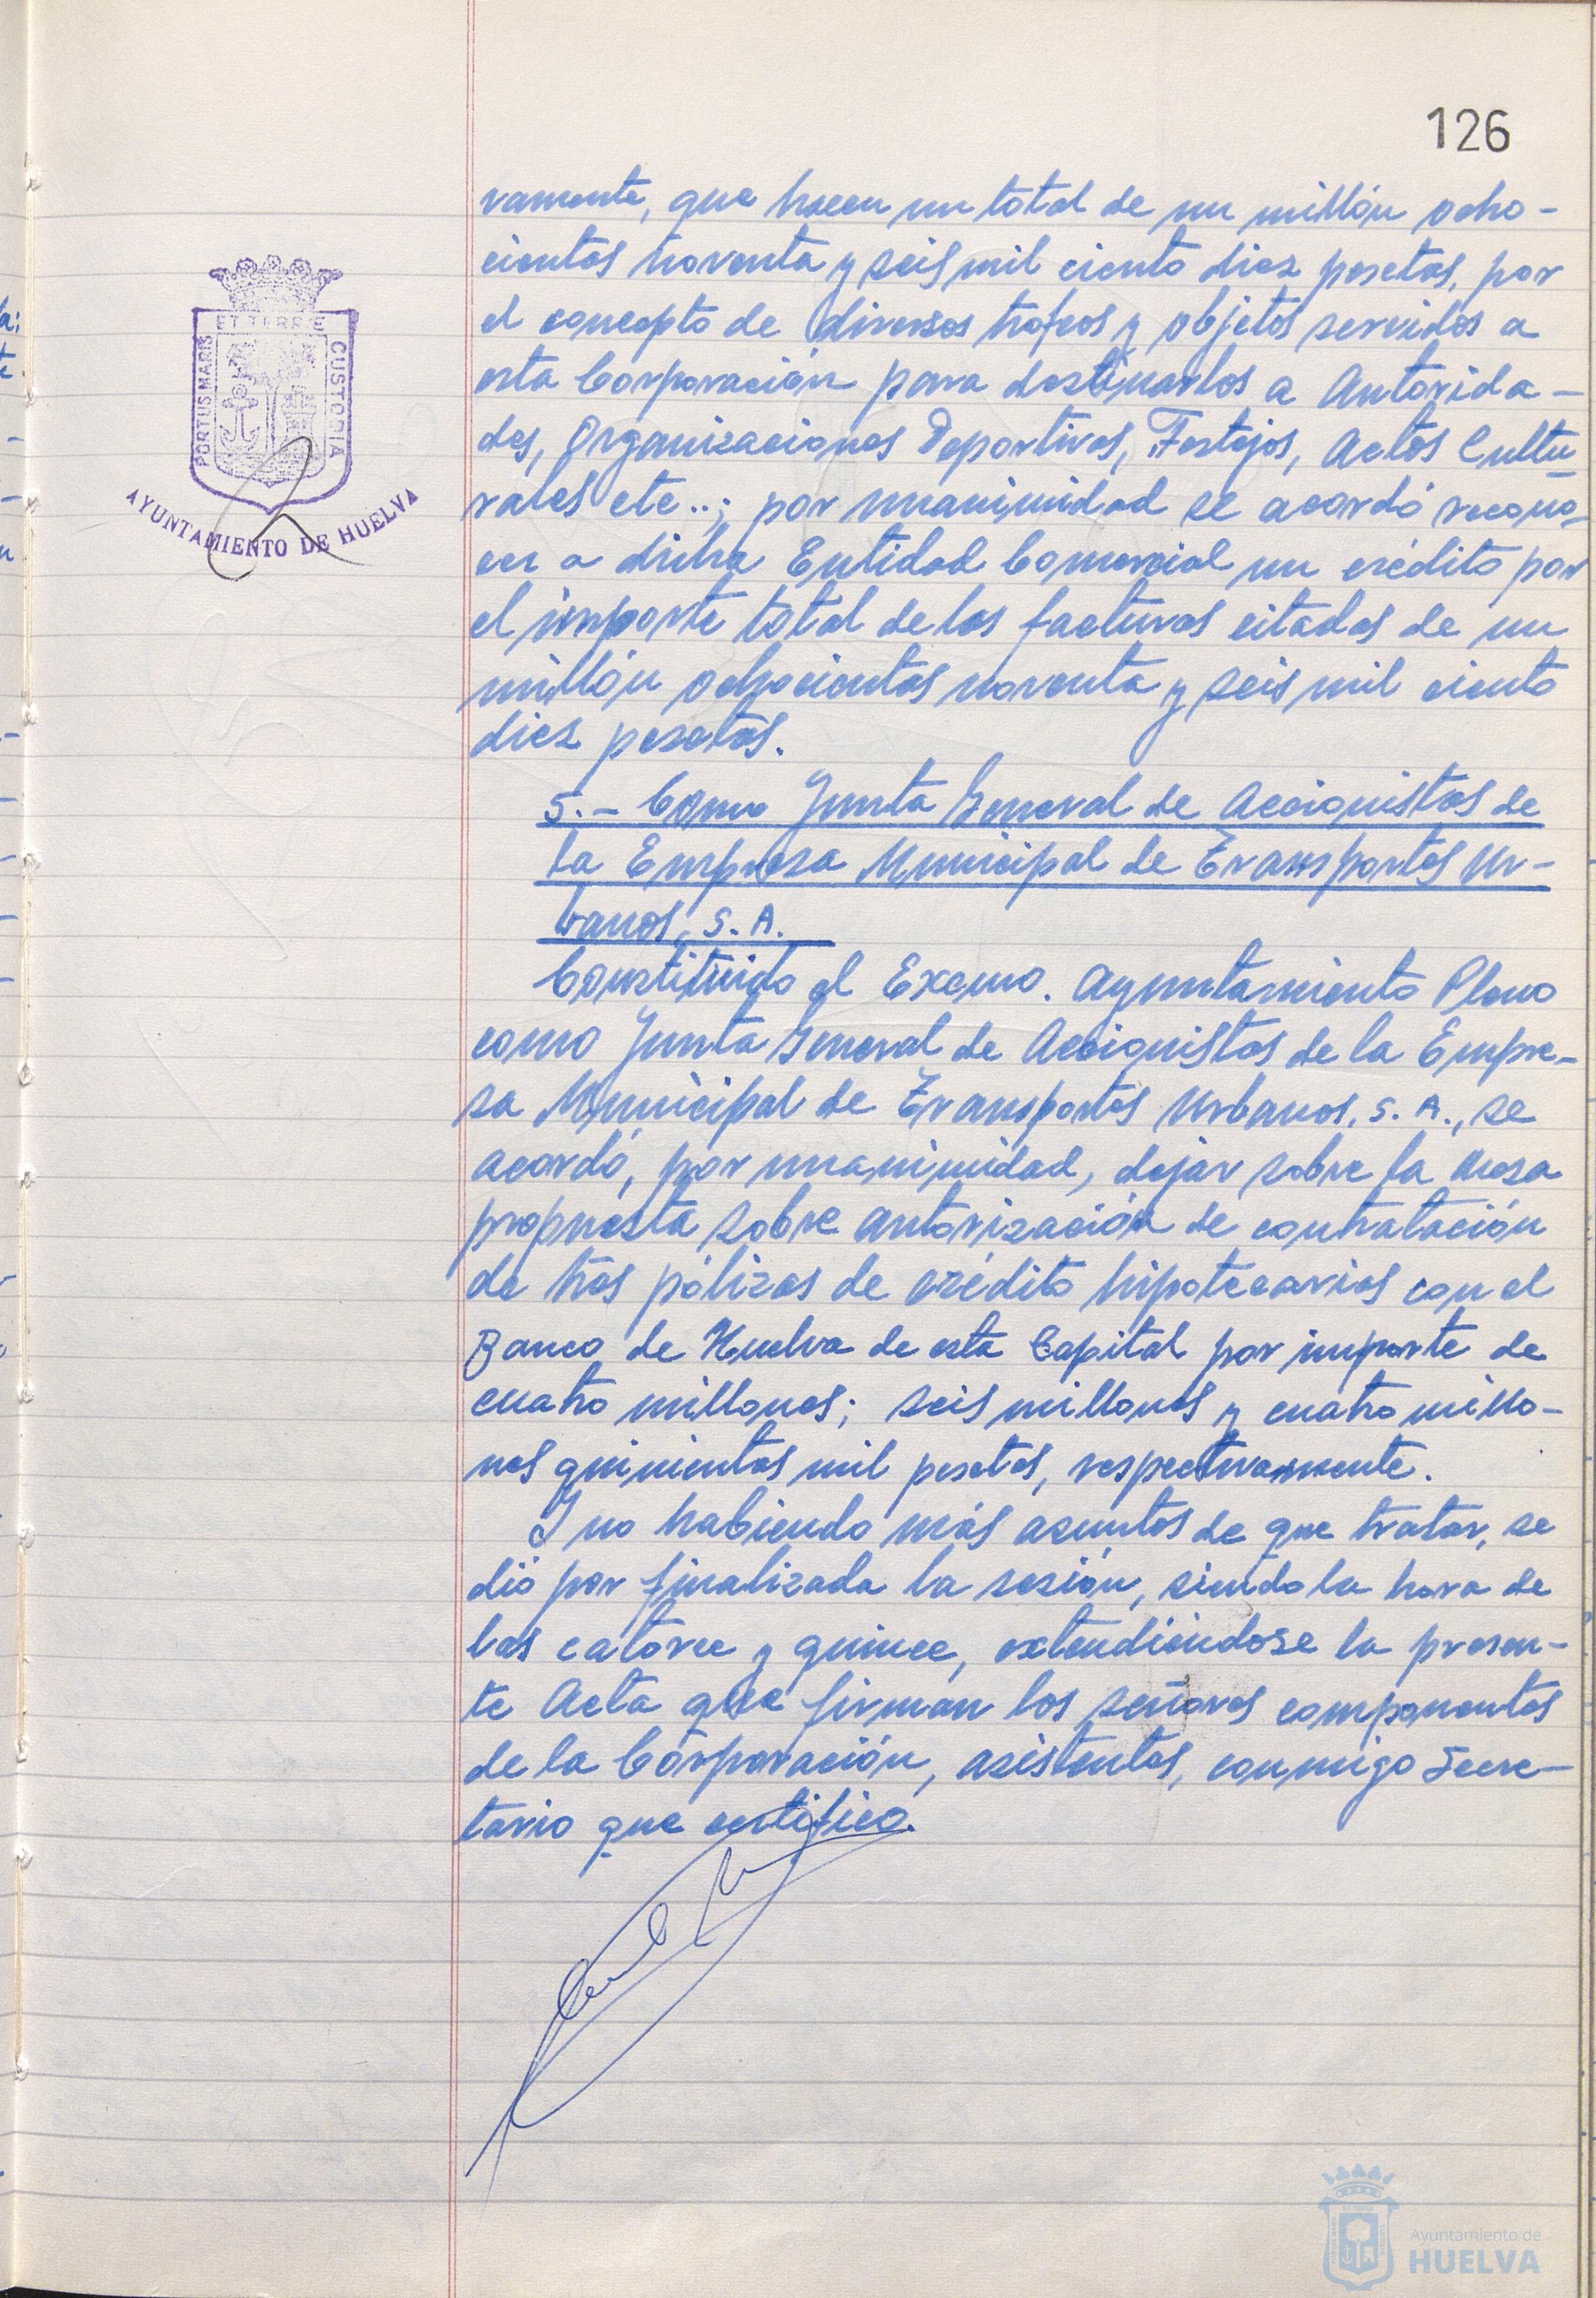 126
vamente, que hacen un total de un millón ocho-
cientas noventa y seis mil ciento diez pesetas, por
el concepto de diversos trofeos y objetos servidos a
esta Corporación para destinarlos a Autorida-
des, Organizaciones Deportivas, Festejos, Actos Cultu-
rales etc..; por unanimidad se acordó recono-
cer a dicha Entidad Comercial un crédito por
el importe total de las facturas citadas de un
millón ochocientas noventa y seis mil ciento
diez pesetas.
5.- Como Junta General de Accionistas de
la Empresa Municipal de Transportes Ur-
banos, S.A.
Constituido el Excmo. Ayuntamiento Pleno
como Junta General de Accionistas de la Empre-
sa Municipal de Transportes Urbanos, S.A., se
acordó, por unanimidad, dejar sobre la Mesa
propuesta sobre autorización de contratación
de tres pólizas de crédito hipotecarias con el
Banco de Huelva de esta Capital por importe de
cuatro millones; seis millones y cuatro millo-
nes quinientas mil pesetas, respectivamente.
Y no habiendo más asuntos de que tratar, se
dió por finalizada la sesión, siendo la hora de
las catorce y quince, extendiéndose la presen-
te Acta que firman los señores componentes
de la Corporación, asistentes, conmigo Secre-
tario que certifico.
PORTUS MARIS
ET TERRE
CUSTODIA
AYUNTAMIENTO DE HUELVA
Ayuntamiento de
HUELVA